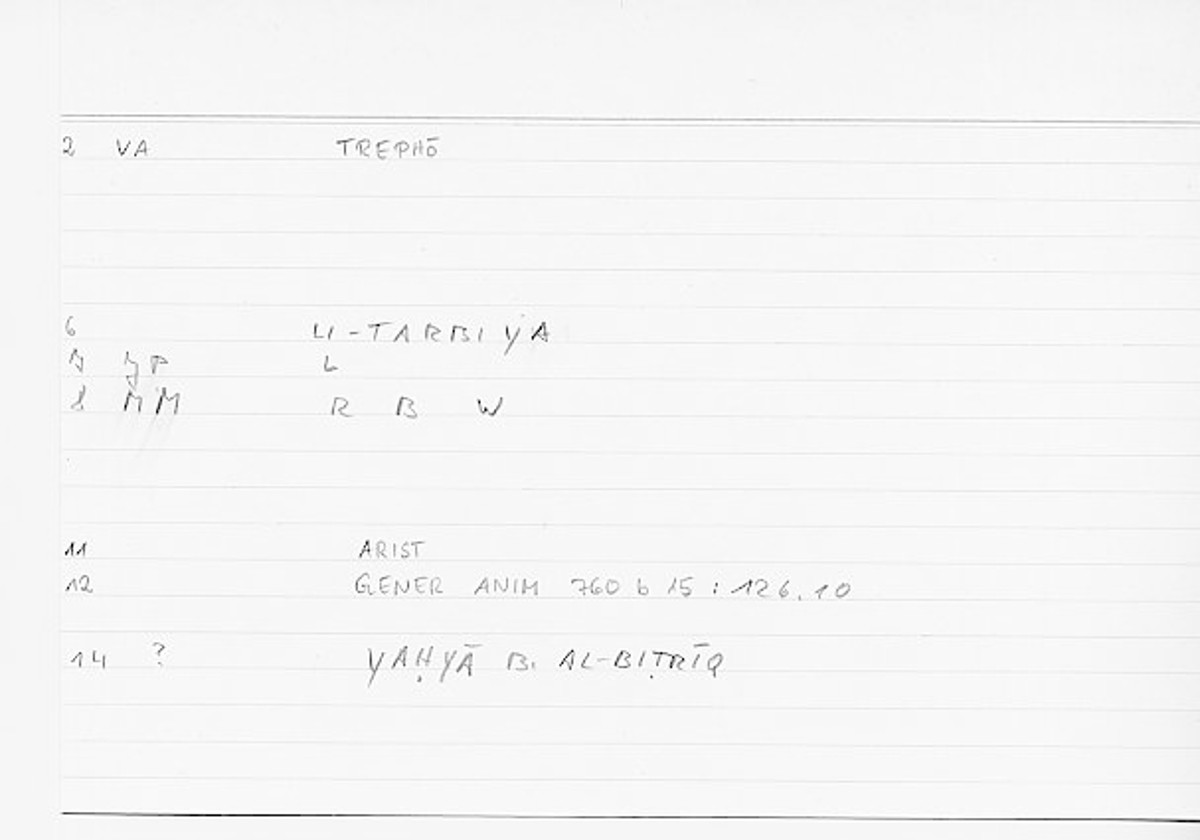 2 VA TREPHŌ
6 LI-TARBIYA
7 JP L
8 MM R B W
11 ARIST
12 GENER ANIM 760 b 15 : 126.10
14 ? YAḤYĀ B. AL-BIṬRĪQ